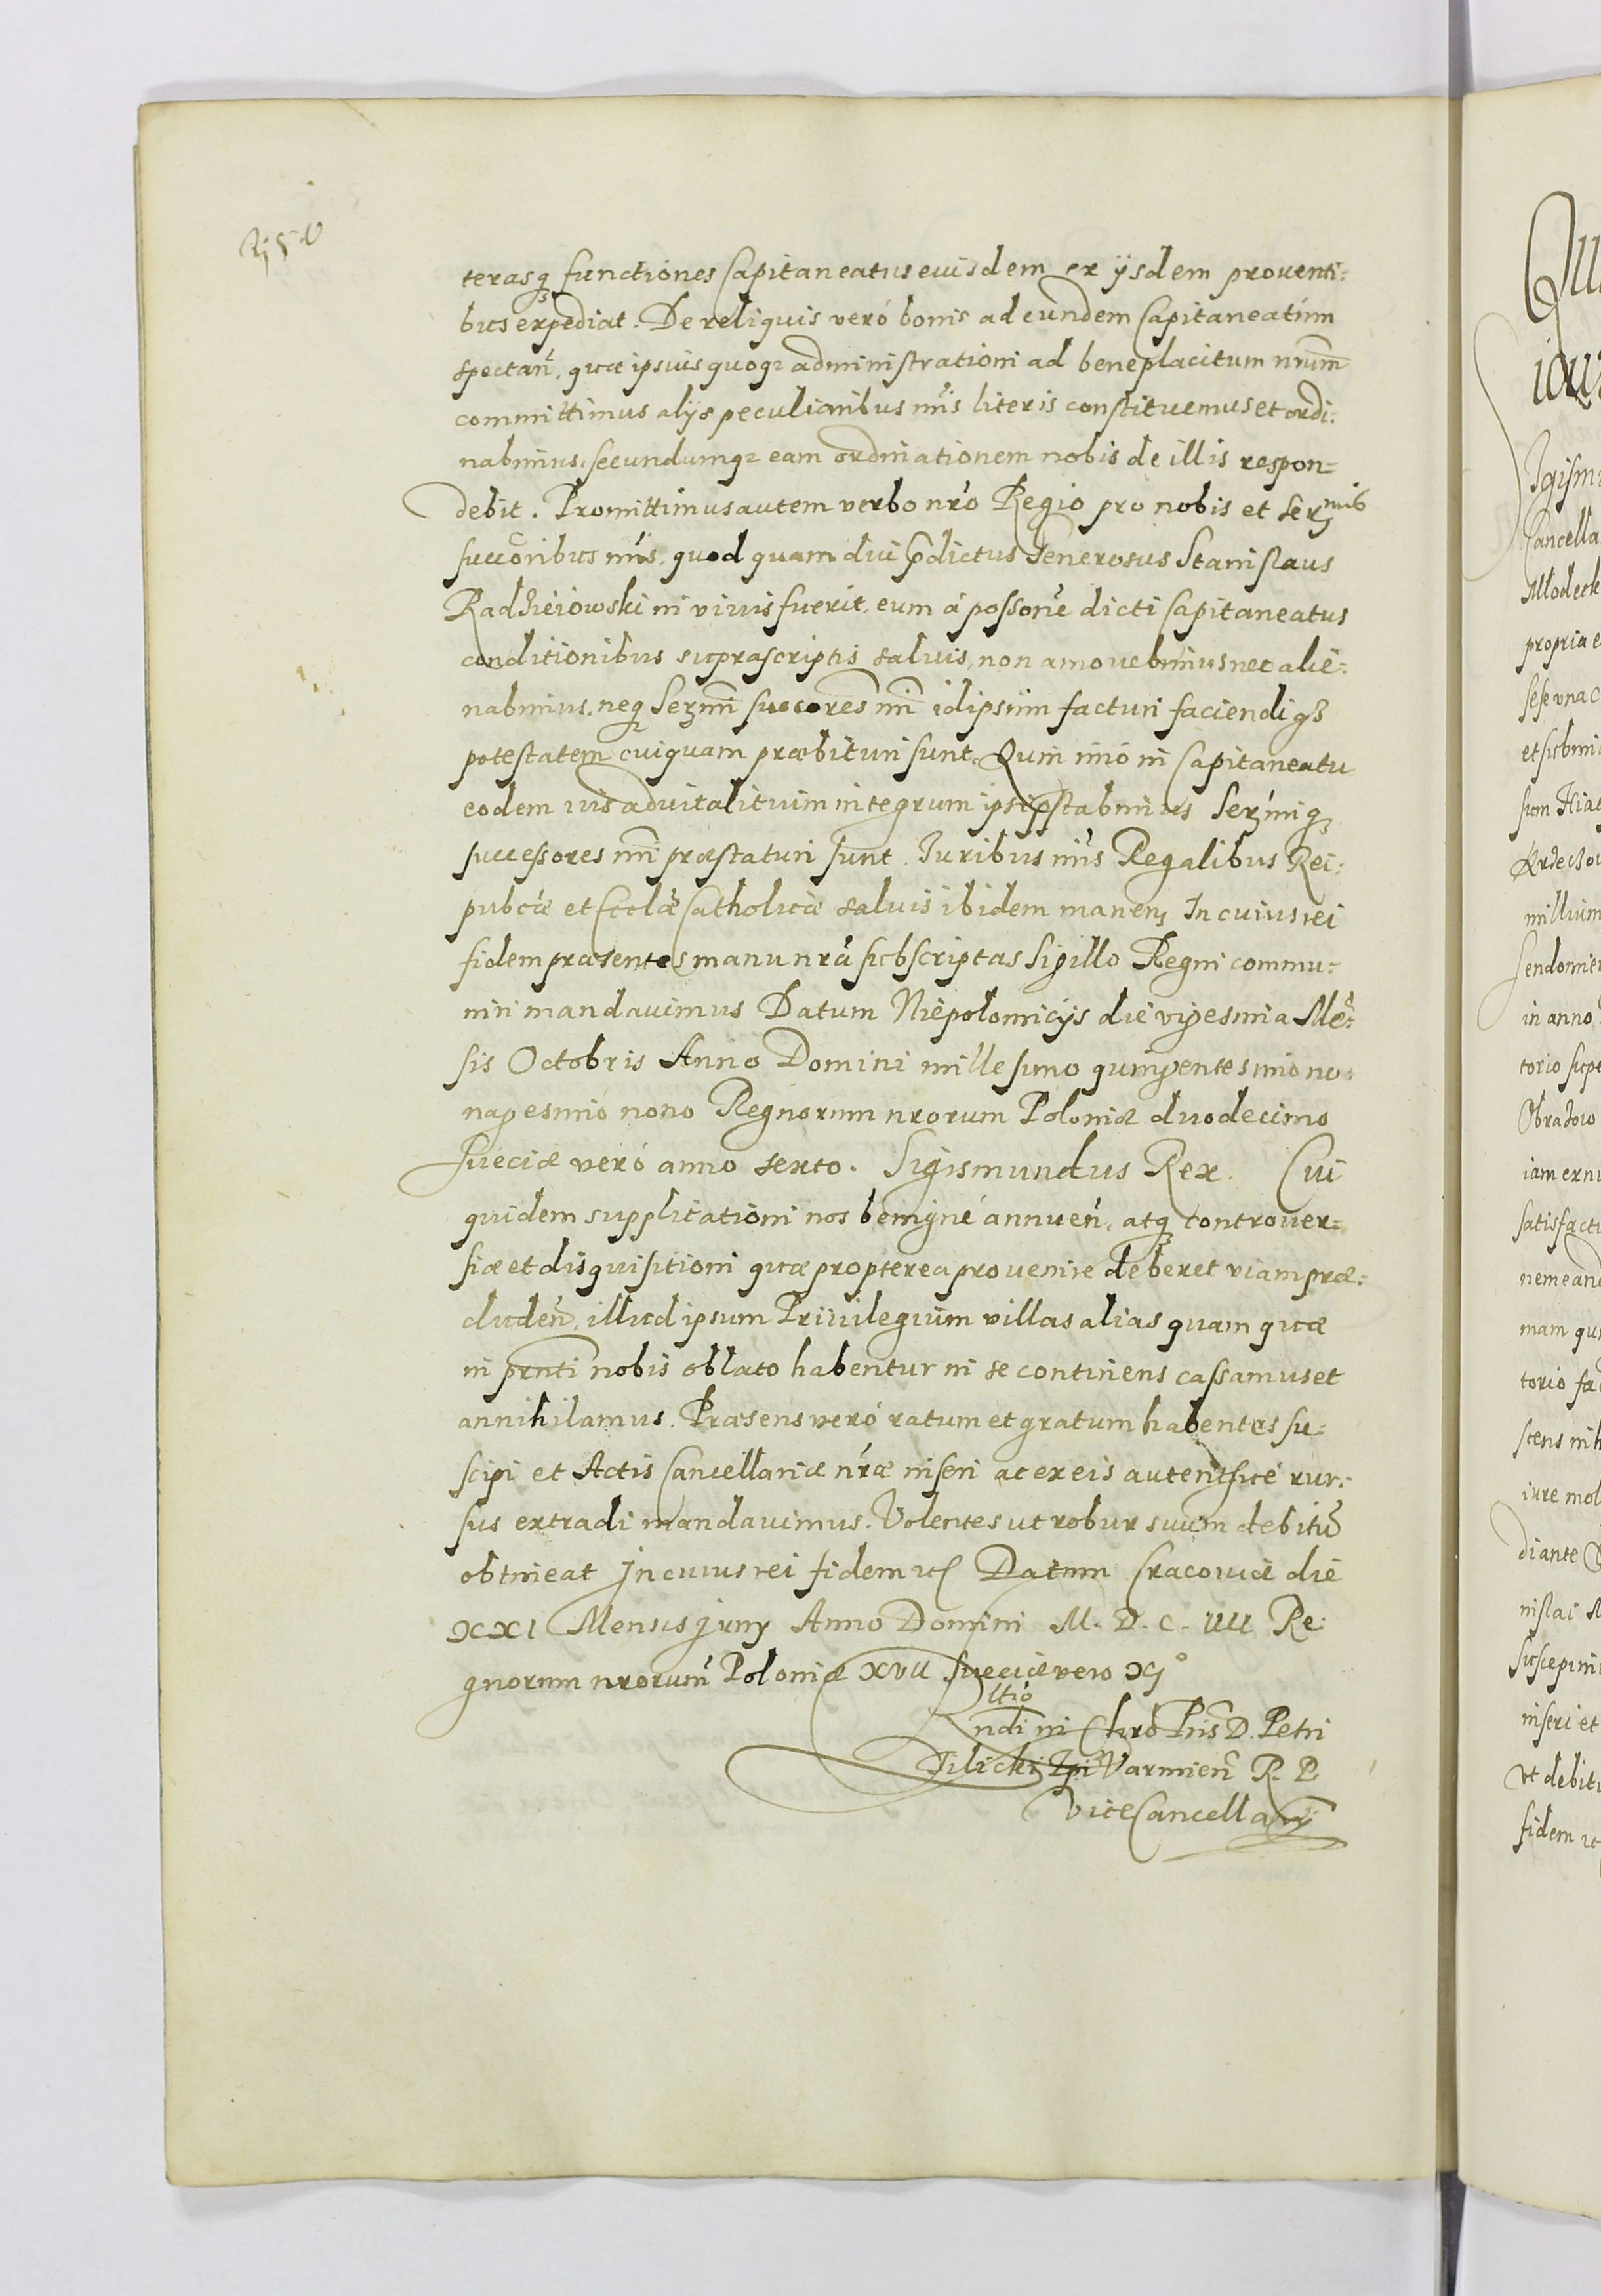 terasq functiones Capitaneatus eiusdem ex ijsdem prouenti=
bus expediat. De reliquis veró bonis ad eundem Capitaneatum
spectañ, quæ ipsius quoq administrationi ad beneplacitum nrum
committimus alijs peculiaribus nris literis constituemus et ordi=
nabimus, secundumq eam ordinationem nobis de illis respon=
debit. Promittimus autem verbo nro Regio pro nobis et Sermis
succoribus nris, quod quam diu pdictus Generosus Stanislaus
Radzieiowski in viuis fuerit, eum á possone dicti Capitaneatus
conditionibus suprascriptis saluis, non amouebimus nec alie=
nabimus, neq Sermi succores nri idipsum facturi faciendiq
potestatem cuiquam præbituri sunt. Quin imó in Capitaneatu
eodem ius aduitalitium integrum ipsi pstabimus Sermiq
successores nri præstaturi sunt. Iuribus nris Regalibus Rei=
pubcæ et Ecclæ Catholicæ saluis ibidem manen In cuius rei
fidem præsentes manu nrá subscriptas Sigillo Regni commu=
niri mandauimus Datum Niepolomicijs die vigesima Me=
sis Octobris Anno Domini millesimo quingentesimo no=
nagesimo nono Regnorum nrorum Poloniæ duodecimo
Sueciæ veró anno sexto. Sigismundus Rex. Cui
quidem supplicationi nos benigné annueñ, atq controuer=
siæ et disquisitioni quæ propterea prouenire deberet viam præ=
cludeñ, illud ipsum Priuilegium villas alias quam quæ
in prnti nobis oblato habentur in se continens cassamus et
annihilamus. Præsens veró ratum et gratum habentes su=
scipi et Actis Cancellariæ nræ inseri ac ex eis autenticé rur=
sus extradi mandauimus. Volentes ut robur suum debitu
obtineat In cuius rei fidem etc Datum Cracouiæ die
XXI Mensis Juny Anno Domini M. D. C. IIII Re=
gnorum nrorum Poloniæ XVII Sueciæ vero XIº
ltio
Rndi in Chro Pris D. Petri
Tilicki Epi Varmien R. P.
ViceCancellarij